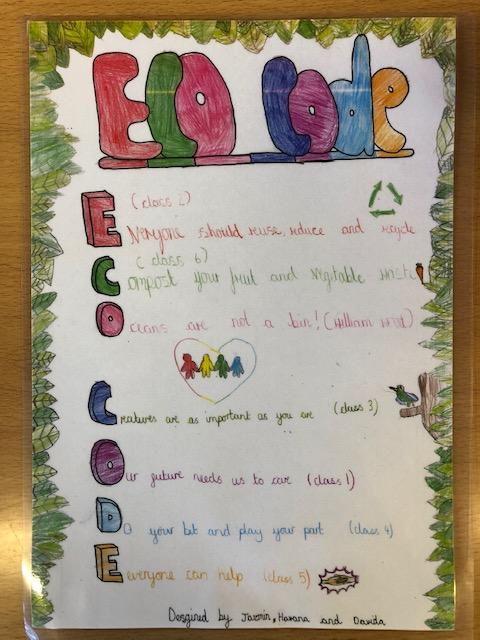 ECO Code
(class 2)
Everyone should reuse, reduce and recycle
(class 6)
Compost your fruit and vegitable waste
Oceans are not a bin! (William
Creatures are as important as you are (class 3)
Our future needs us to care (class 1)
Do your bit and play your part (class 4)
Eeveryone can help (class 5)
Desgined by Jasmin, Havana and Davida